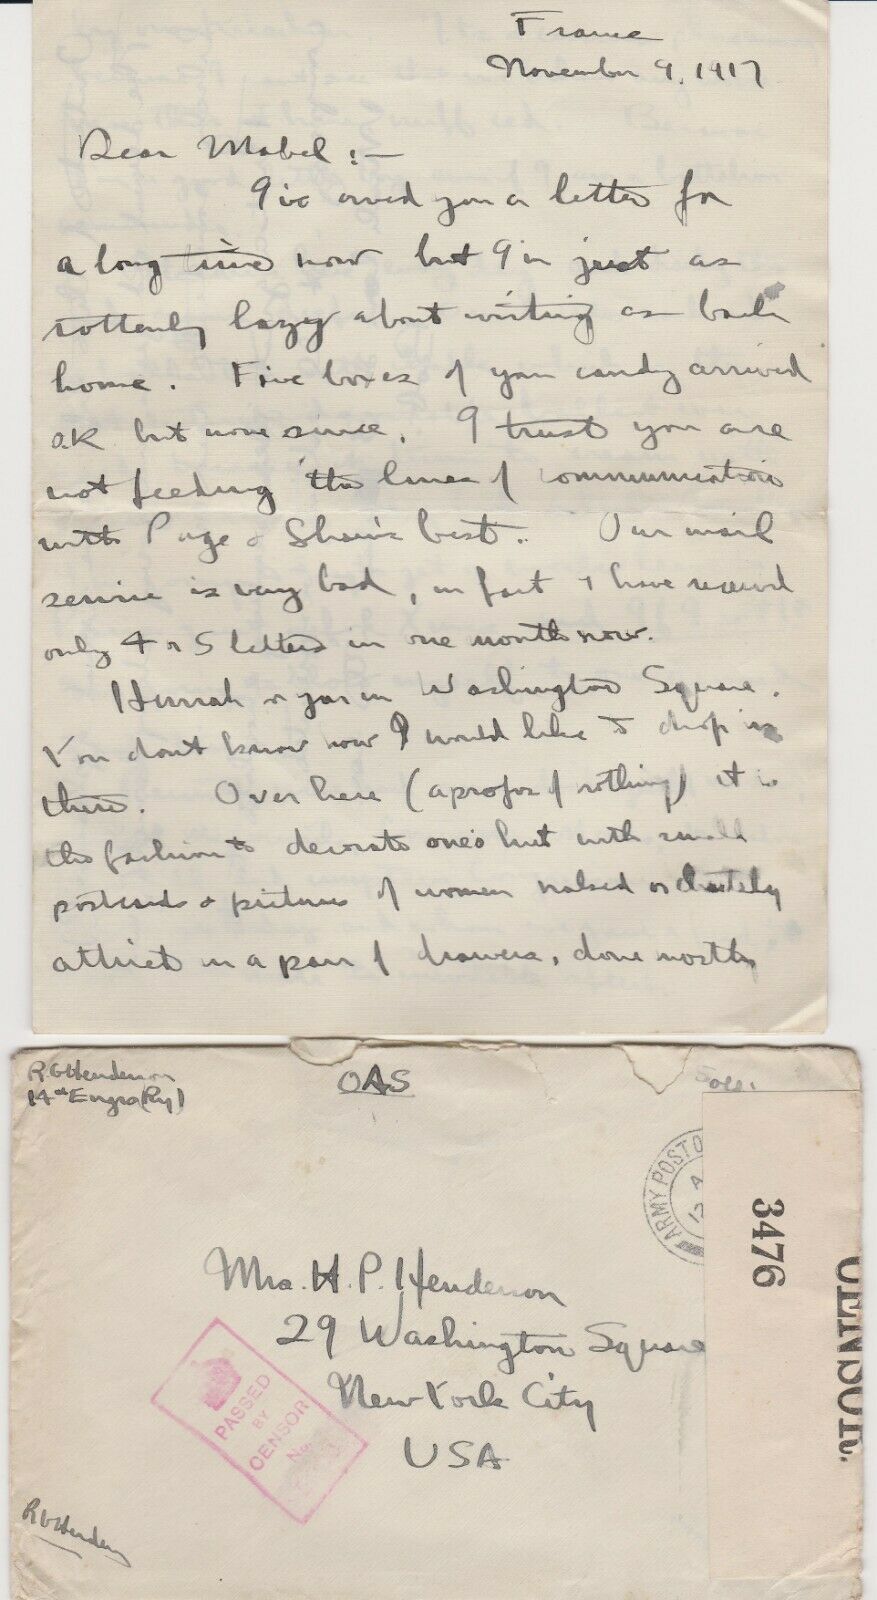 France
November 9, 1917
Dear Mabel :—
I've owed you a letter for
a long time now but I'm just as
rottenly lazy about writing as back
home. Five boxes of your candy arrived
OK but none since. I trust you are
not feeding the lines of communication
with Page & Shaw's best. Our mail
service is very bad, in fact I have received
only 4 or 5 letters in one month now.
Hurrah for you in Washington Square.
You don't know how I would like to drop in
there. Over here (apropos of nothing) it is
the fashion to decorate one's hut with small
postcards & pictures of women naked or chastely
attired in a pair of drawers, done mostly
R G Henderson
14th Engrs (Ry)
OAS
ARMY POST O
3476
CENSOR.
Mrs. H. P. Henderson
29 Washington Square
New York City
USA
PASSED
BY
CENSOR
No.
R G Henderson